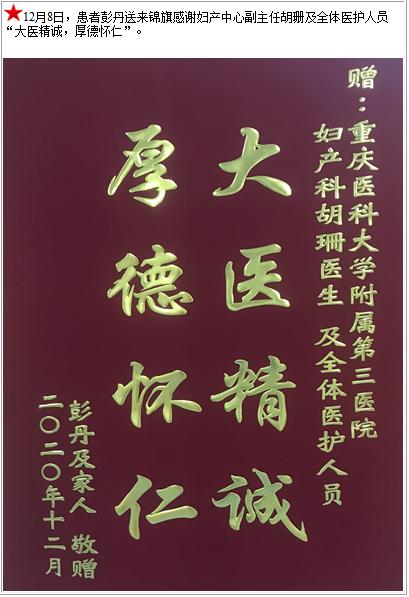 ★12月8日，患者彭丹送来锦旗感谢妇产中心副主任胡珊及全体医护人员
“大医精诚，厚德怀仁”。
赠：重庆医科大学附属第三医院
妇产科胡珊医生 及全体医护人员
大医精诚
厚德怀仁
彭丹及家人 敬赠
二〇二〇年十二月